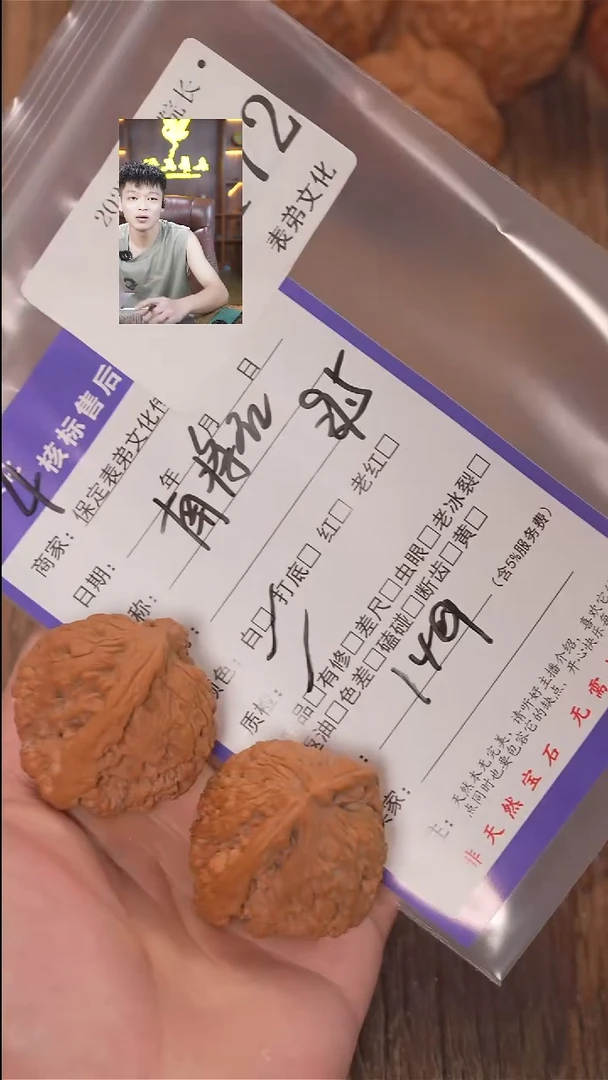 院长
202
72
表弟文化
4核标售后
商家：保定表弟文化
日期： 年 月 日
称：南将石
白□ 打底□ 红□ 老红□
质检：
品□有修□差尺□虫眼□老冰裂□
返油□色差□磕碰□断齿□黄□
149
(含5%服务费)
家：
主：天然本无完美，请听好主播介绍，喜欢它
点同时也要包容它的缺点，开心快乐
非天然宝石 无需